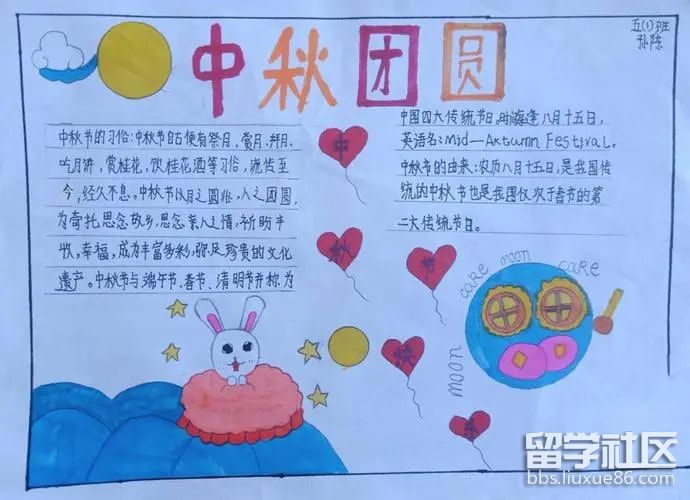 中秋团圆
五(1)班
孙陈
中秋节的习俗:中秋节自古便有祭月,赏月,拜月,
吃月讲,赏桂花,饮桂花酒等习俗,流传至
今,经久不息。中秋节以月之圆兆,人之团圆,
为寄托思念故乡,思念亲人之情,祈盼丰
收,幸福,成为丰富多彩,弥足珍贵的文化
遗产。中秋节与端午节、春节、清明节并称为
中国四大传统节日,时
逢八月十五日,
英语名:Mid—Aktumn Festival.
中秋节的由来:农历八月十五日,是我国传
统的中秋节也是我国仅次于春节的第
二大传统节日。
中
秋
节
快
乐
cake moon cake
moon
留学社区
bbs.liuxue86.com